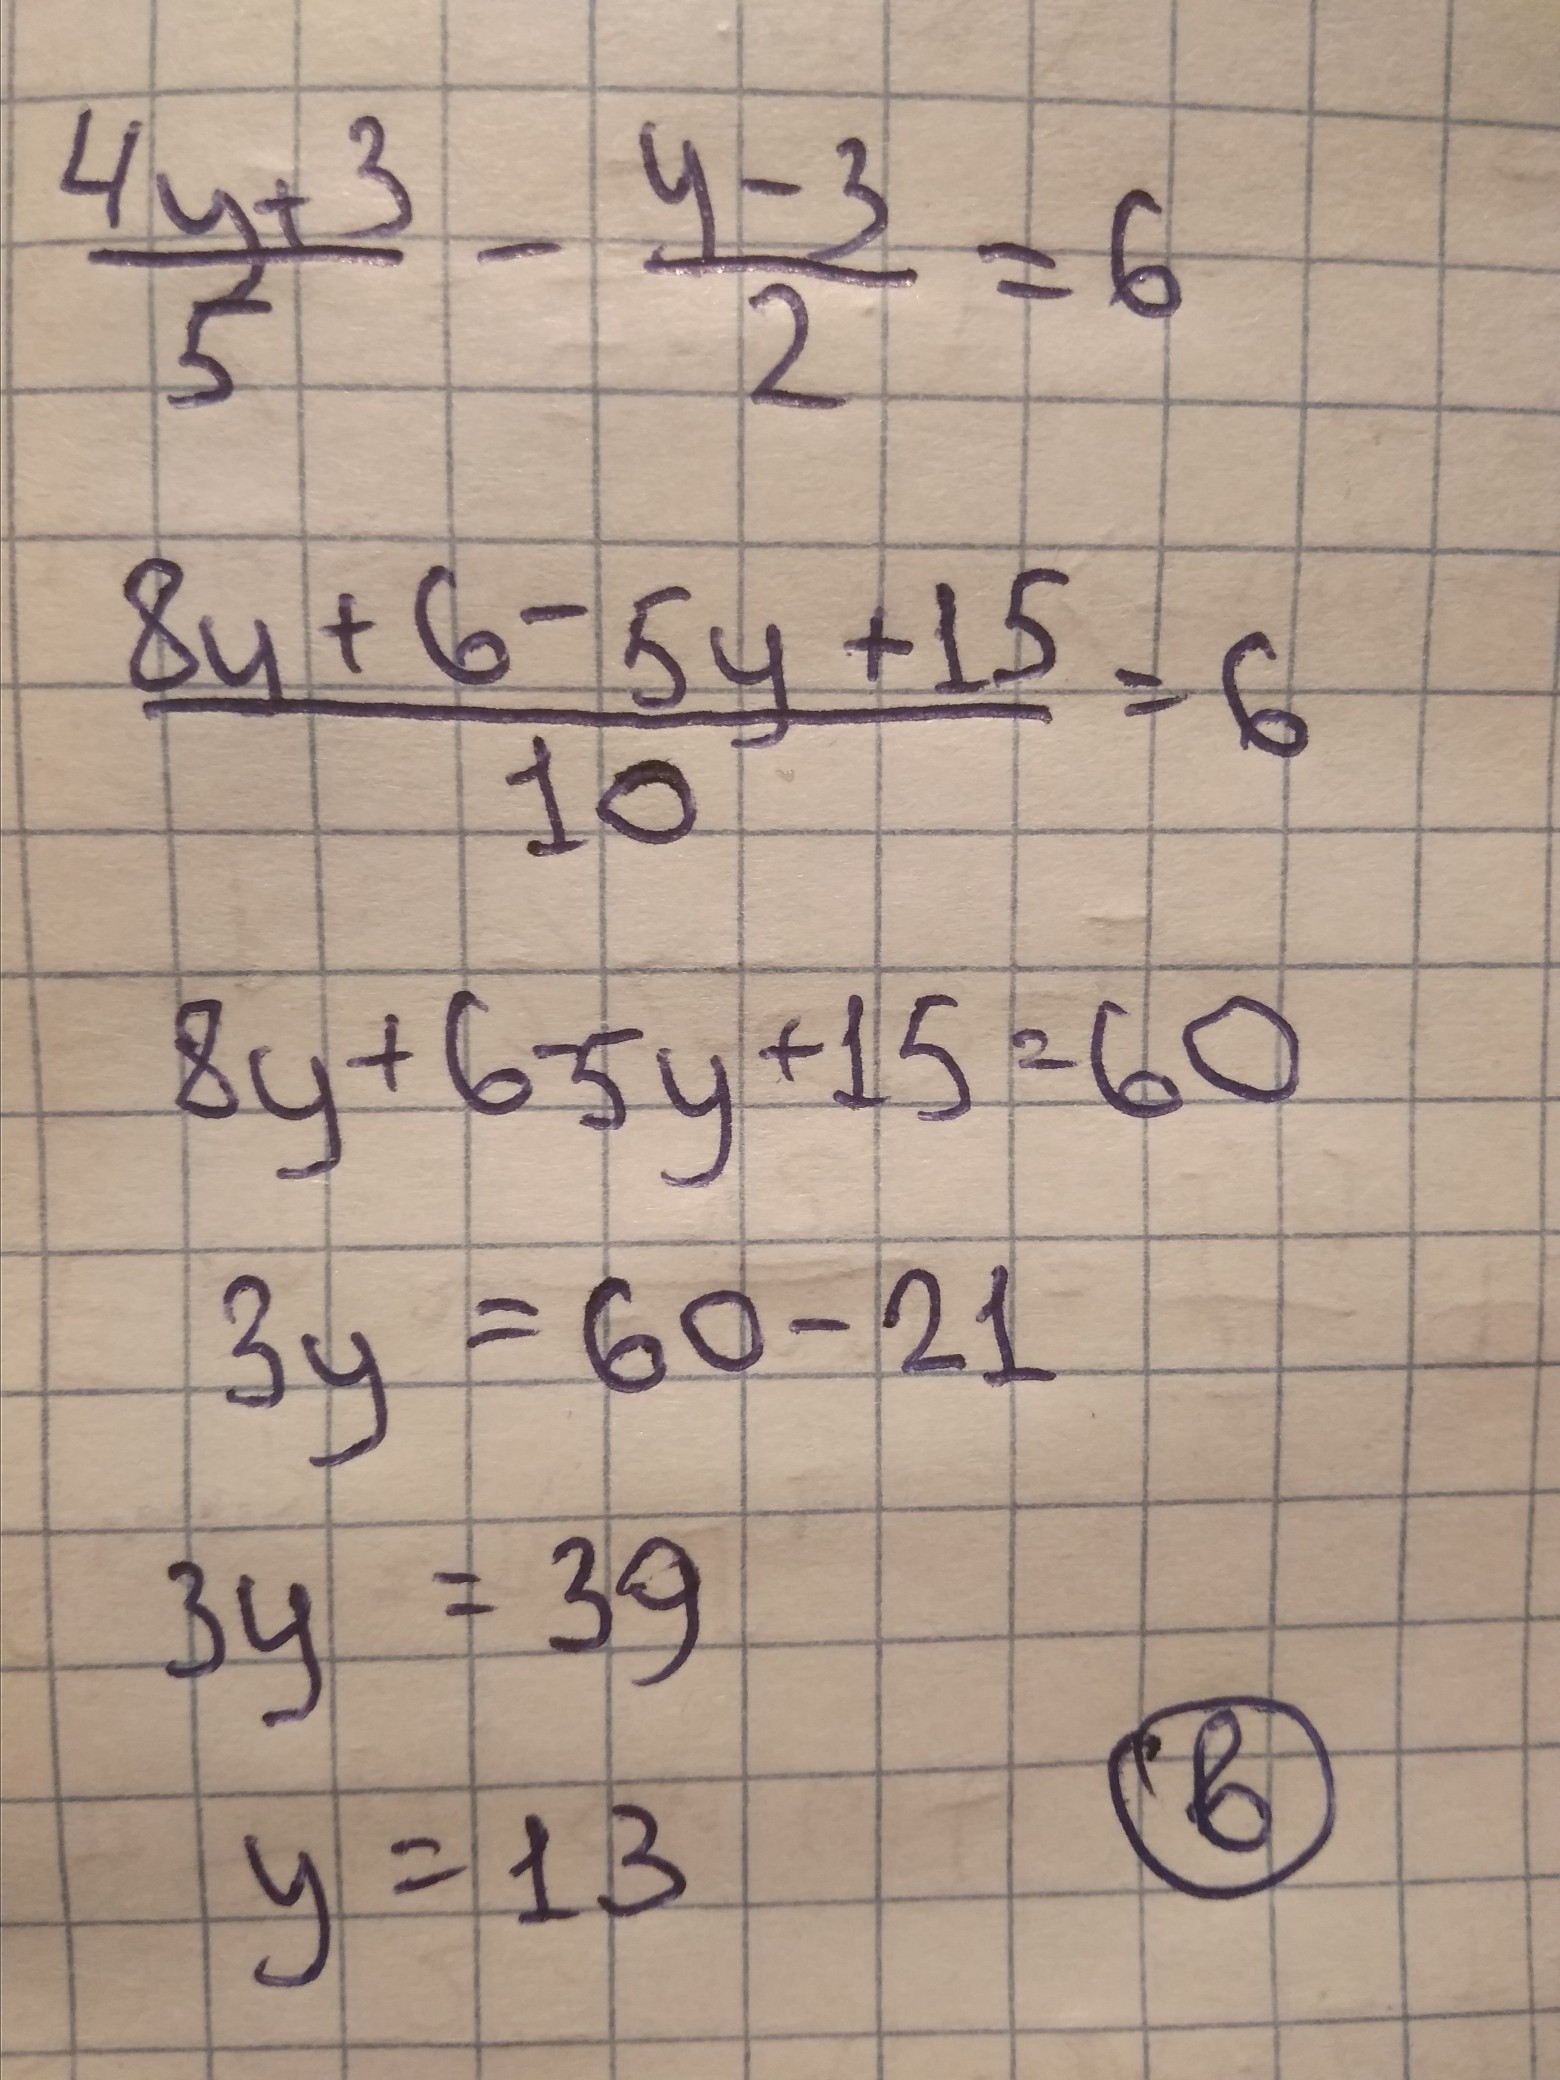 (4y+3)/5 - (y-3)/2 = 6
(8y+6-5y+15)/10 = 6
8y+6-5y+15=60
3y = 60-21
3y = 39
y = 13
в